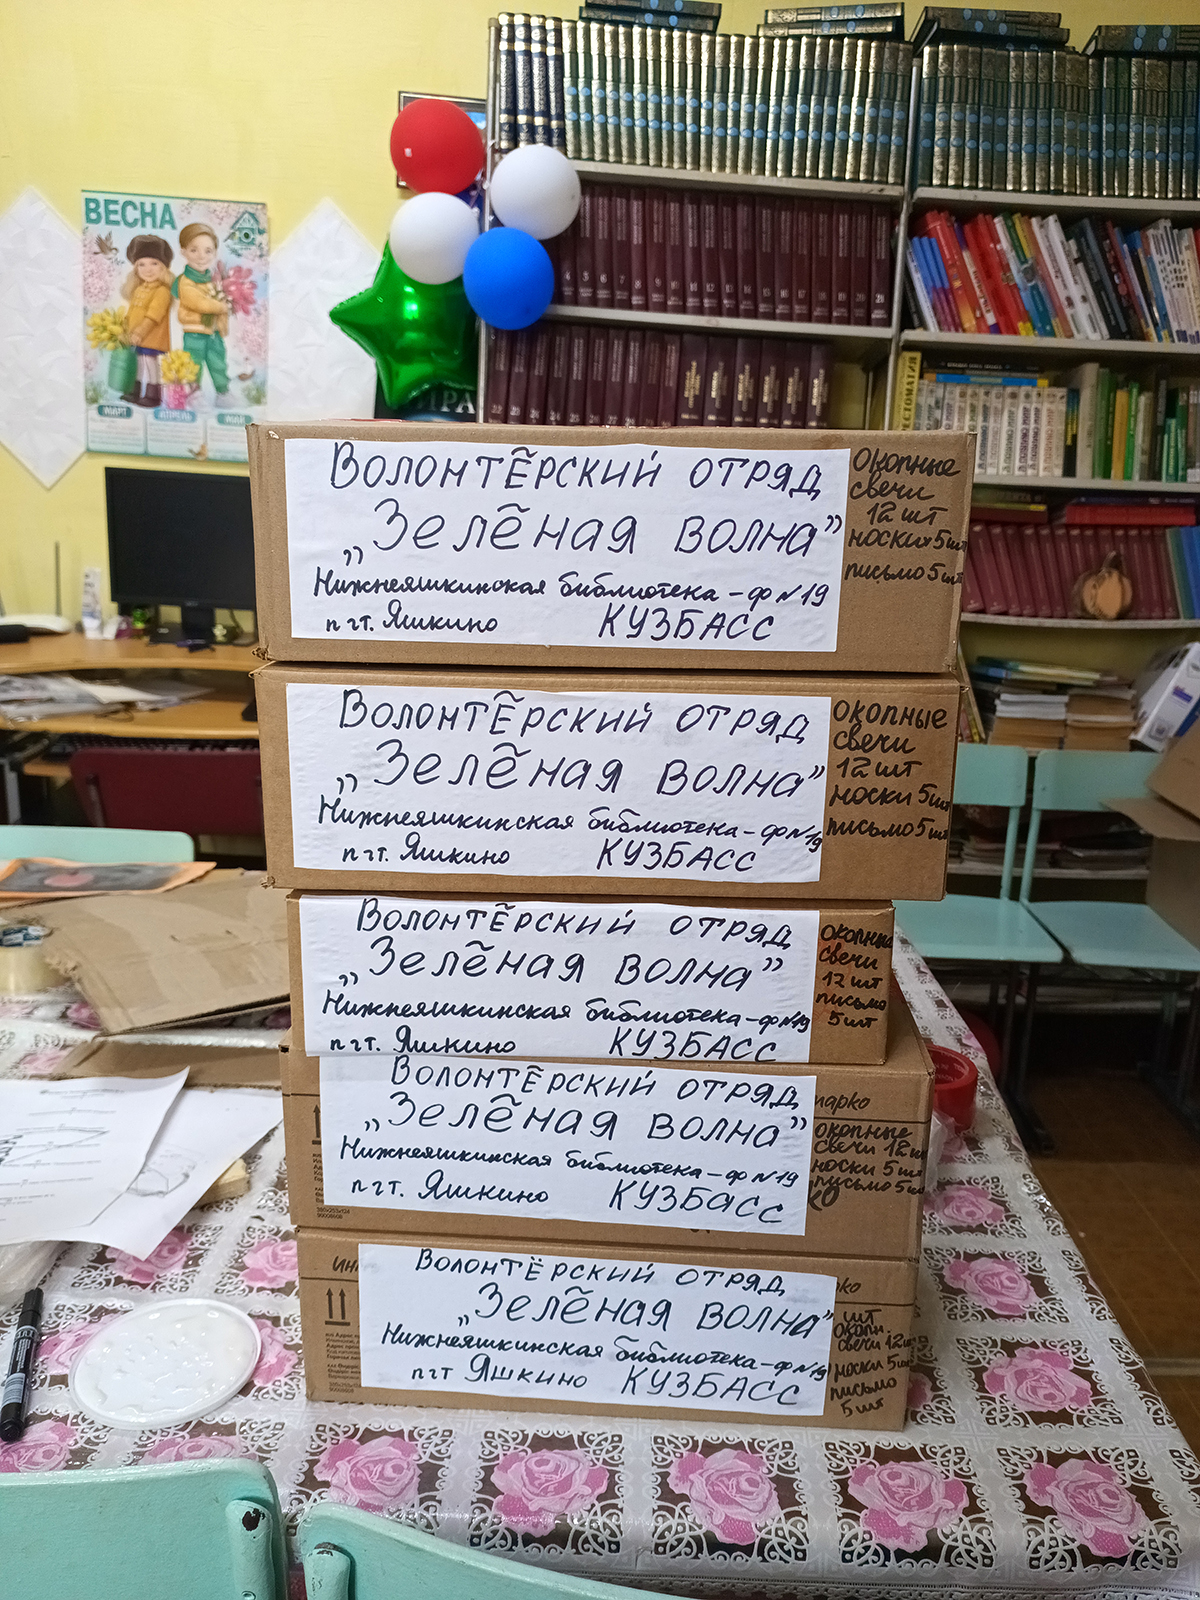 ВЕСНА
МАРТ
АПРЕЛЬ
МАЙ
ВОЛОНТЁРСКИЙ ОТРЯД
„Зелёная волна”
Нижнеяшкинская библиотека – ф №19
пгт. Яшкино КУЗБАСС
окопные
свечи
12 шт
носки 5шт
письмо 5 шт
ВОЛОНТЁРСКИЙ ОТРЯД
„Зелёная волна”
Нижнеяшкинская библиотека – ф №19
пгт. Яшкино КУЗБАСС
окопные
свечи
12 шт
носки 5 шт
письмо 5 шт
ВОЛОНТЁРСКИЙ ОТРЯД
„Зелёная волна”
Нижнеяшкинская библиотека – ф №19
пгт. Яшкино КУЗБАСС
окопные
свечи
12 шт
письмо
5 шт
ВОЛОНТЁРСКИЙ ОТРЯД
„Зелёная волна”
Нижнеяшкинская библиотека – ф №19
пгт. Яшкино КУЗБАСС
окопные
свечи 12 шт
носки 5 шт
письмо 5 шт
ВОЛОНТЁРСКИЙ ОТРЯД
„Зелёная волна”
Нижнеяшкинская библиотека – ф №19
пгт Яшкино КУЗБАСС
шт
окопн.
свечи 12 шт
носки 5 шт
письмо
5 шт